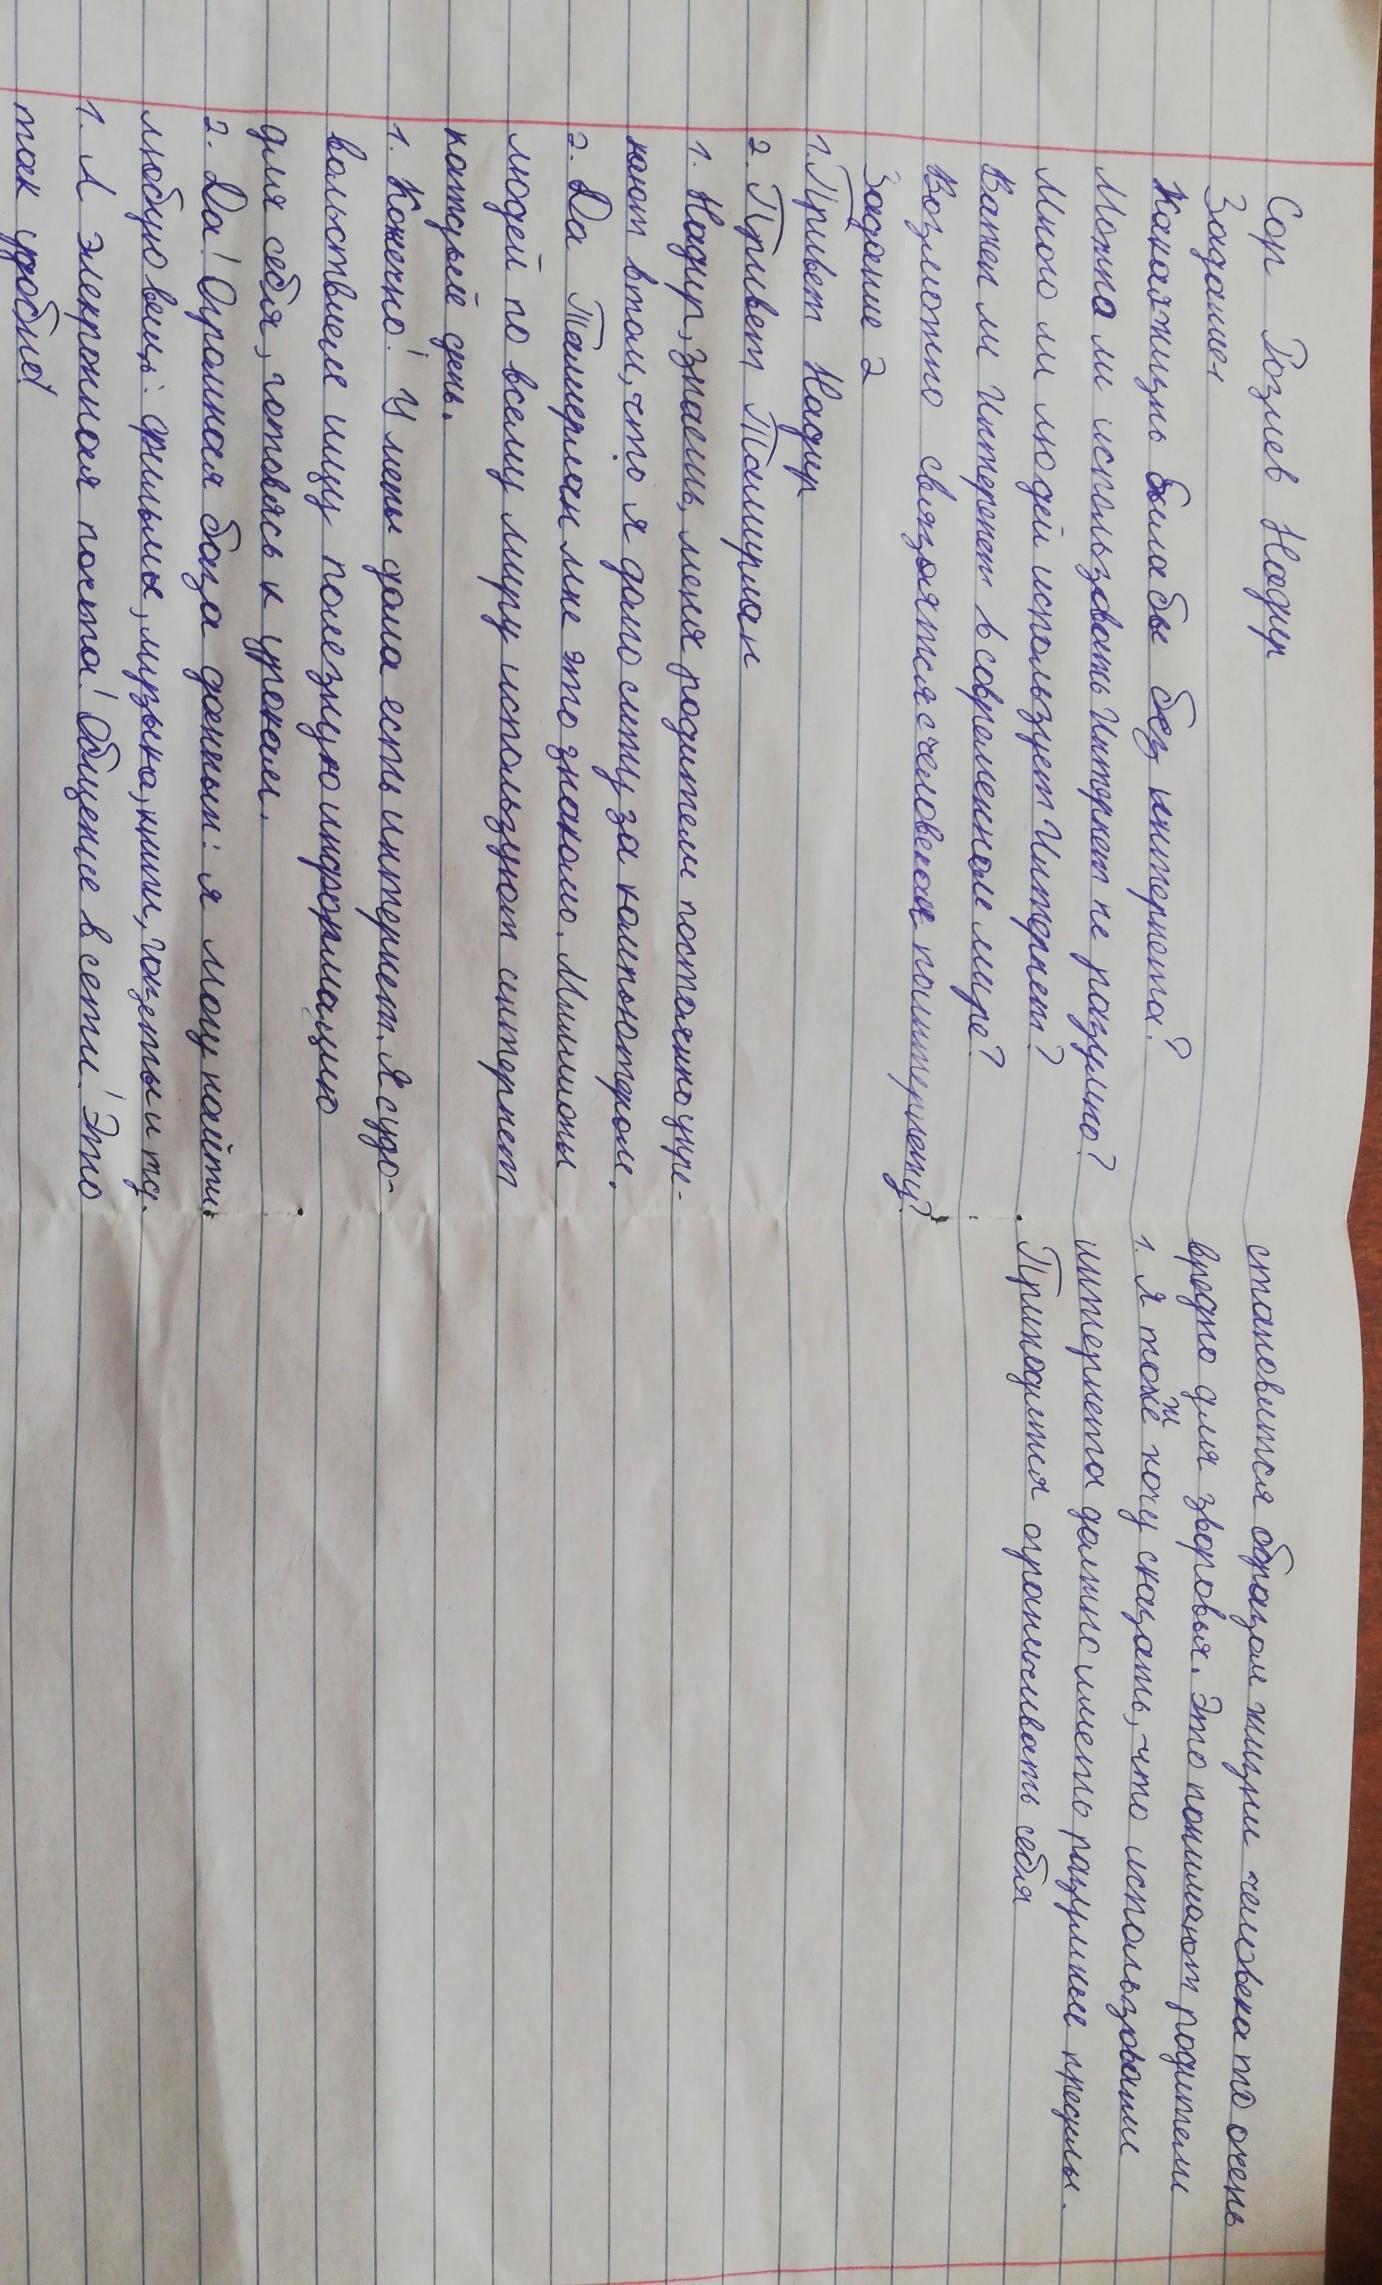 Сор Розиев Надир
Задание1
Какая жизнь была бы без интернета?
Можно ли использовать Интернет не разумно?
Много ли людей использует Интернет?
Важен ли Интернет в современном мире?
Возможно связаятся с человеком поинтернету?
Задание 2
1. Привет Надир
2. Привет Тамирлан
1. Надир, знаешь, меня родители постоянно упре-
кают втом, что я долго сижу за компьютером.
2. Да Тамерлан мне это знакомо. Миллионы
людей по всему миру используют интернет
каждый день.
1. Конечно! У меня дома есть интернет. Я судо-
вольствием ищу полезную информацию
для себя, готовясь к урокам.
2. Да! Огромная база данных: я могу найти
любую вещь: фильмы, музыка, книги, газеты и тд.
1. А элекронная почта! Общение в сети! Это
так удобно!
становится образом жизни человека то очень
вредно для зворовья. Это понимают родители
1. Я тоже хочу сказать, что использование
интернета должно иметь разумные пределы.
Приходится ограничивать себя